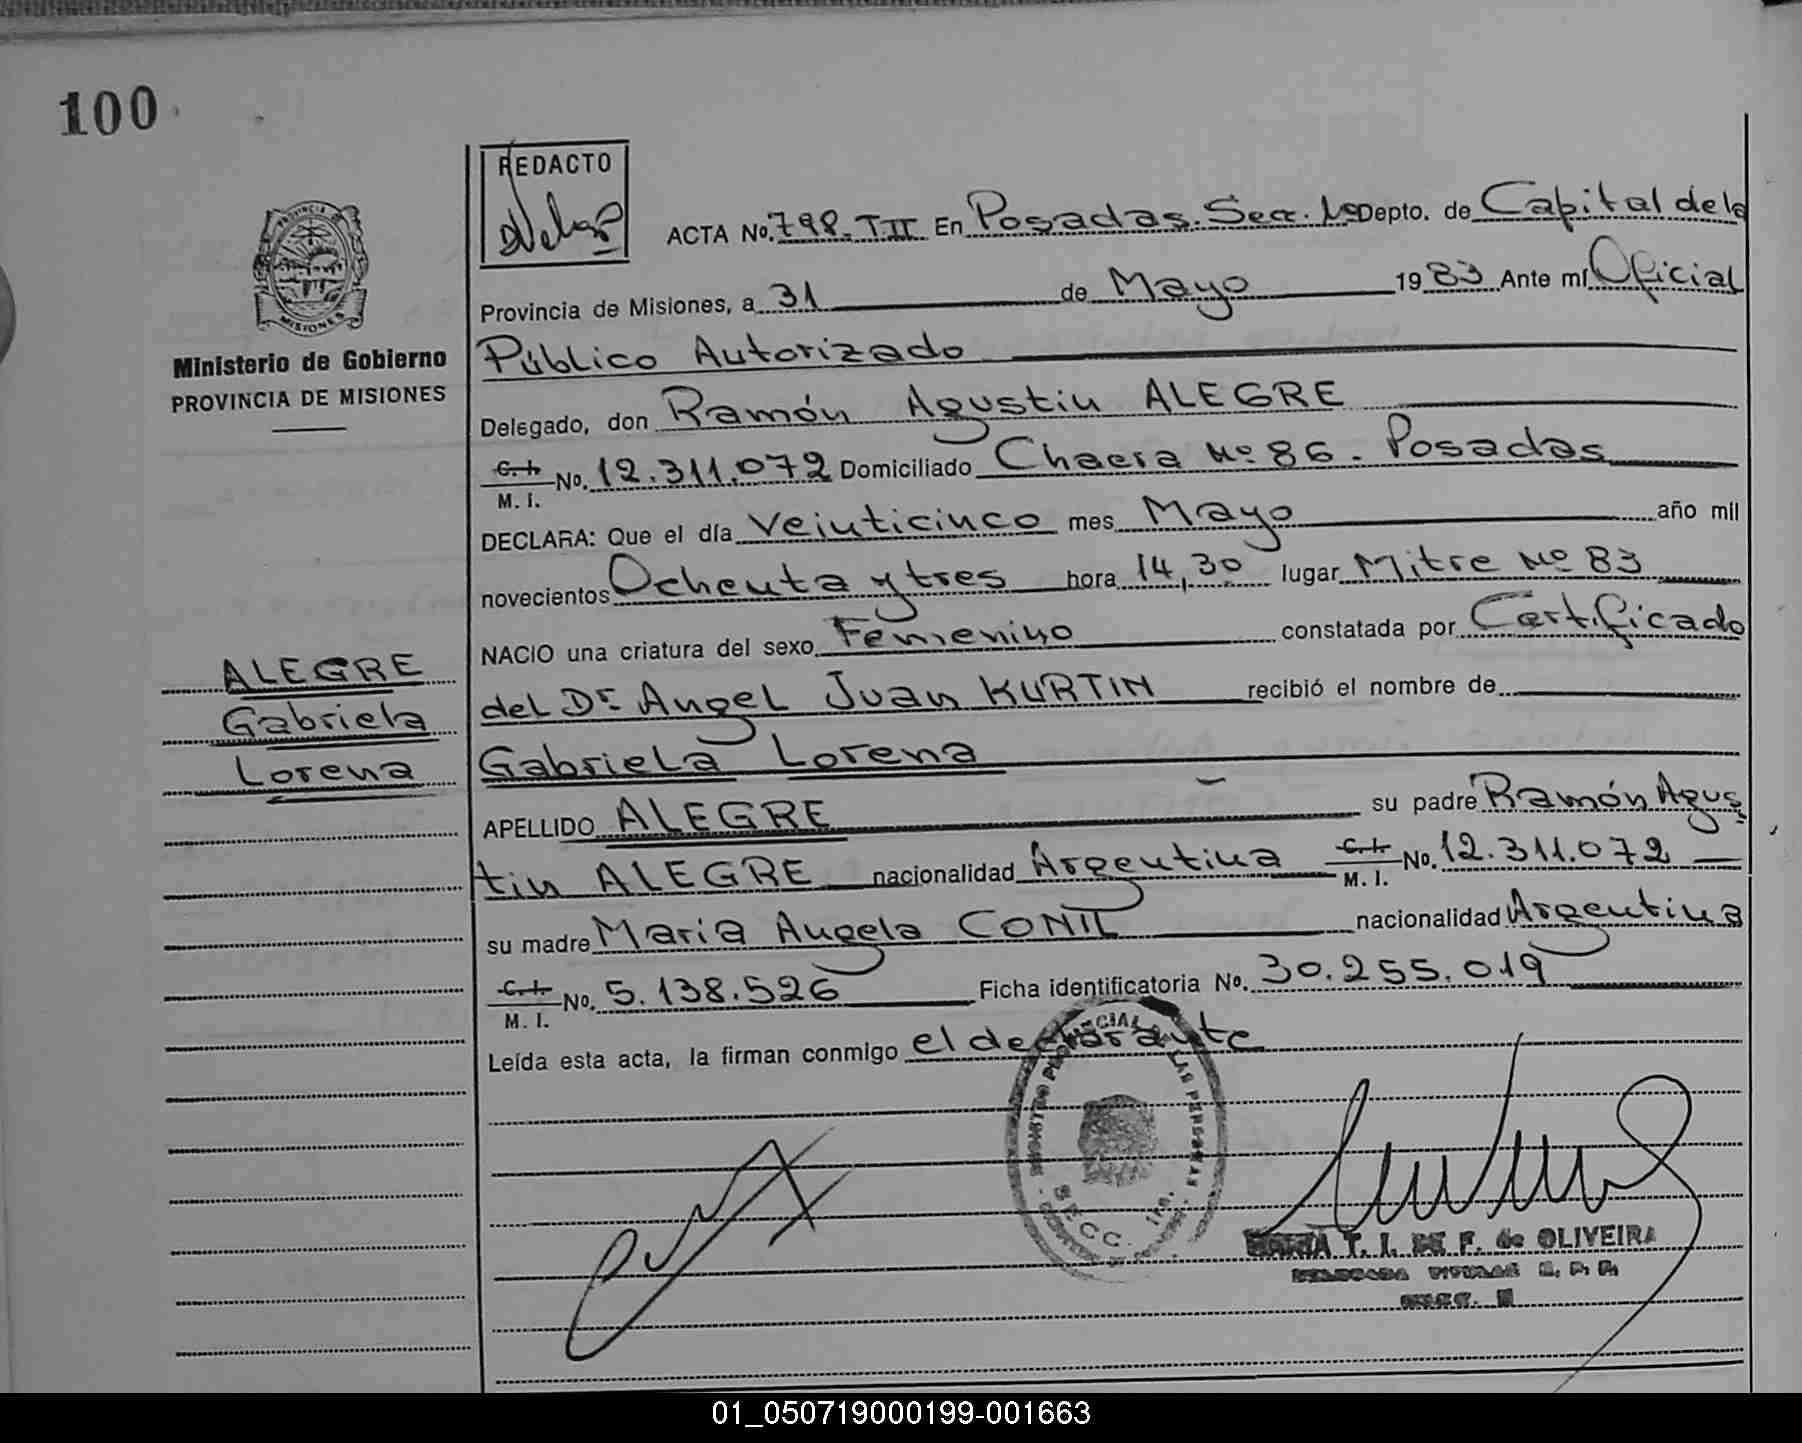 100
REDACTO
ACTA No. 798. T. II En Posadas. Secc. 1a Depto. de Capital de la
MISIONES
Provincia de Misiones, a 31 de Mayo 1983 Ante mí Oficial
Ministerio de Gobierno
PROVINCIA DE MISIONES
Público Autorizado
Delegado, don Ramón Agustin ALEGRE
C. I.
M. I. No. 12.311.072 Domiciliado Chacra Nº 86. Posadas
DECLARA: Que el día Veinticinco mes Mayo año mil
novecientos Ochenta y tres hora 14,30 lugar Mitre Nº 83
NACIO una criatura del sexo Femenino constatada por Certificado
del Dr. Angel Juan KURTIN recibió el nombre de
Gabriela Lorena
ALEGRE
Gabriela
Lorena
APELLIDO ALEGRE su padre Ramón Agus
tin ALEGRE nacionalidad Argentina C. I.
M. I. No. 12.311.072
su madre Maria Angela CONIL nacionalidad Argentina
C. I.
M. I. No. 5.138.526 Ficha identificatoria No. 30.255.019
Leída esta acta, la firman conmigo el declarante
LAS PERSONAS
SECC. 1ra.
MARIA T. I. DE F. de OLIVEIRA
01_050719000199-001663